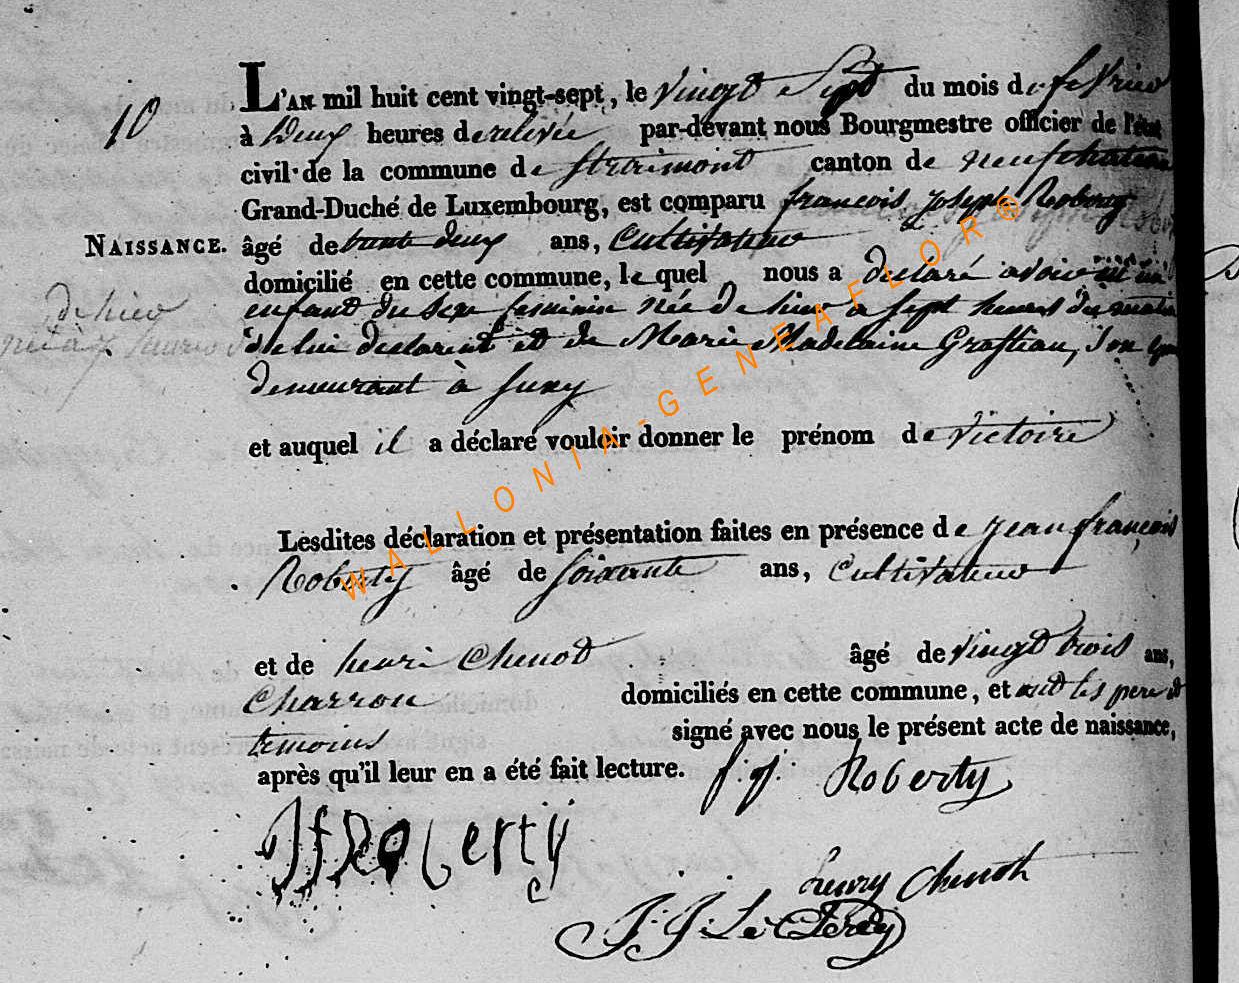 10
L'AN mil huit cent vingt-sept, le vingt Sept du mois de fevrier
à Deux heures de relevée par-devant nous Bourgmestre officier de l'état
civil de la commune de Straimont canton de neufchateau
Grand-Duché de Luxembourg, est comparu francois Joseph Roberty
NAISSANCE.
âgé de trente deux ans, Cultivateur
domicilié en cette commune, le quel nous a déclaré avoir eu un
enfant du Sexe feminin née de hier a sept heures du matin
de hier
née à 7 heures
de lui declarant et de Marie Madelaine Grastiau, son
demeurant à Suxy
et auquel il a déclaré vouloir donner le prénom de Victoire
Lesdites déclaration et présentation faites en présence de jean françois
Roberty âgé de soixante ans, Cultivateur
et de henri Chenot âgé de vingt trois ans,
Charron domiciliés en cette commune, et ont les pere et
temoins signé avec nous le présent acte de naissance,
après qu'il leur en a été fait lecture.
f. j. Roberty
J f Roberty
henry Chenot
J. J. Le Clercq
WALLONIA-GENEAFLOR®